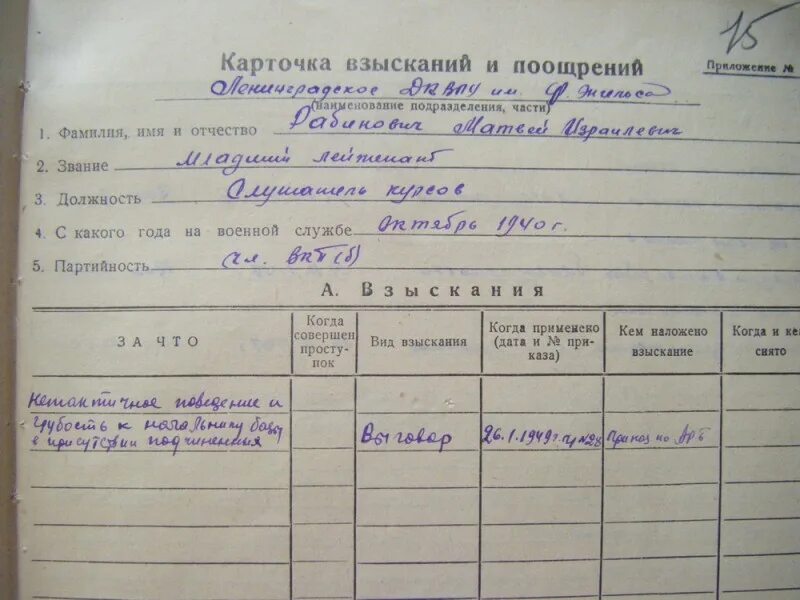 15
Карточка взысканий и поощрений
Приложение №
Ленинградское ДКВПУ им. Ф. Энгельса
(наименование подразделения, части)
1. Фамилия, имя и отчество Рабинович Матвей Израилевич
2. Звание Младший лейтенант
3. Должность Слушатель курсов
4. С какого года на военной службе Октябрь 1940 г.
5. Партийность чл. ВКП(б)
А. Взыскания
ЗА ЧТО
Когда совершен проступок
Вид взыскания
Когда применено (дата и № приказа)
Кем наложено взыскание
Когда и ке
снято
Нетактичное поведение и
грубость к начальнику базы
в присутствии подчинения
Выговор
26.1.1949 г. №28
Приказ по АРБ